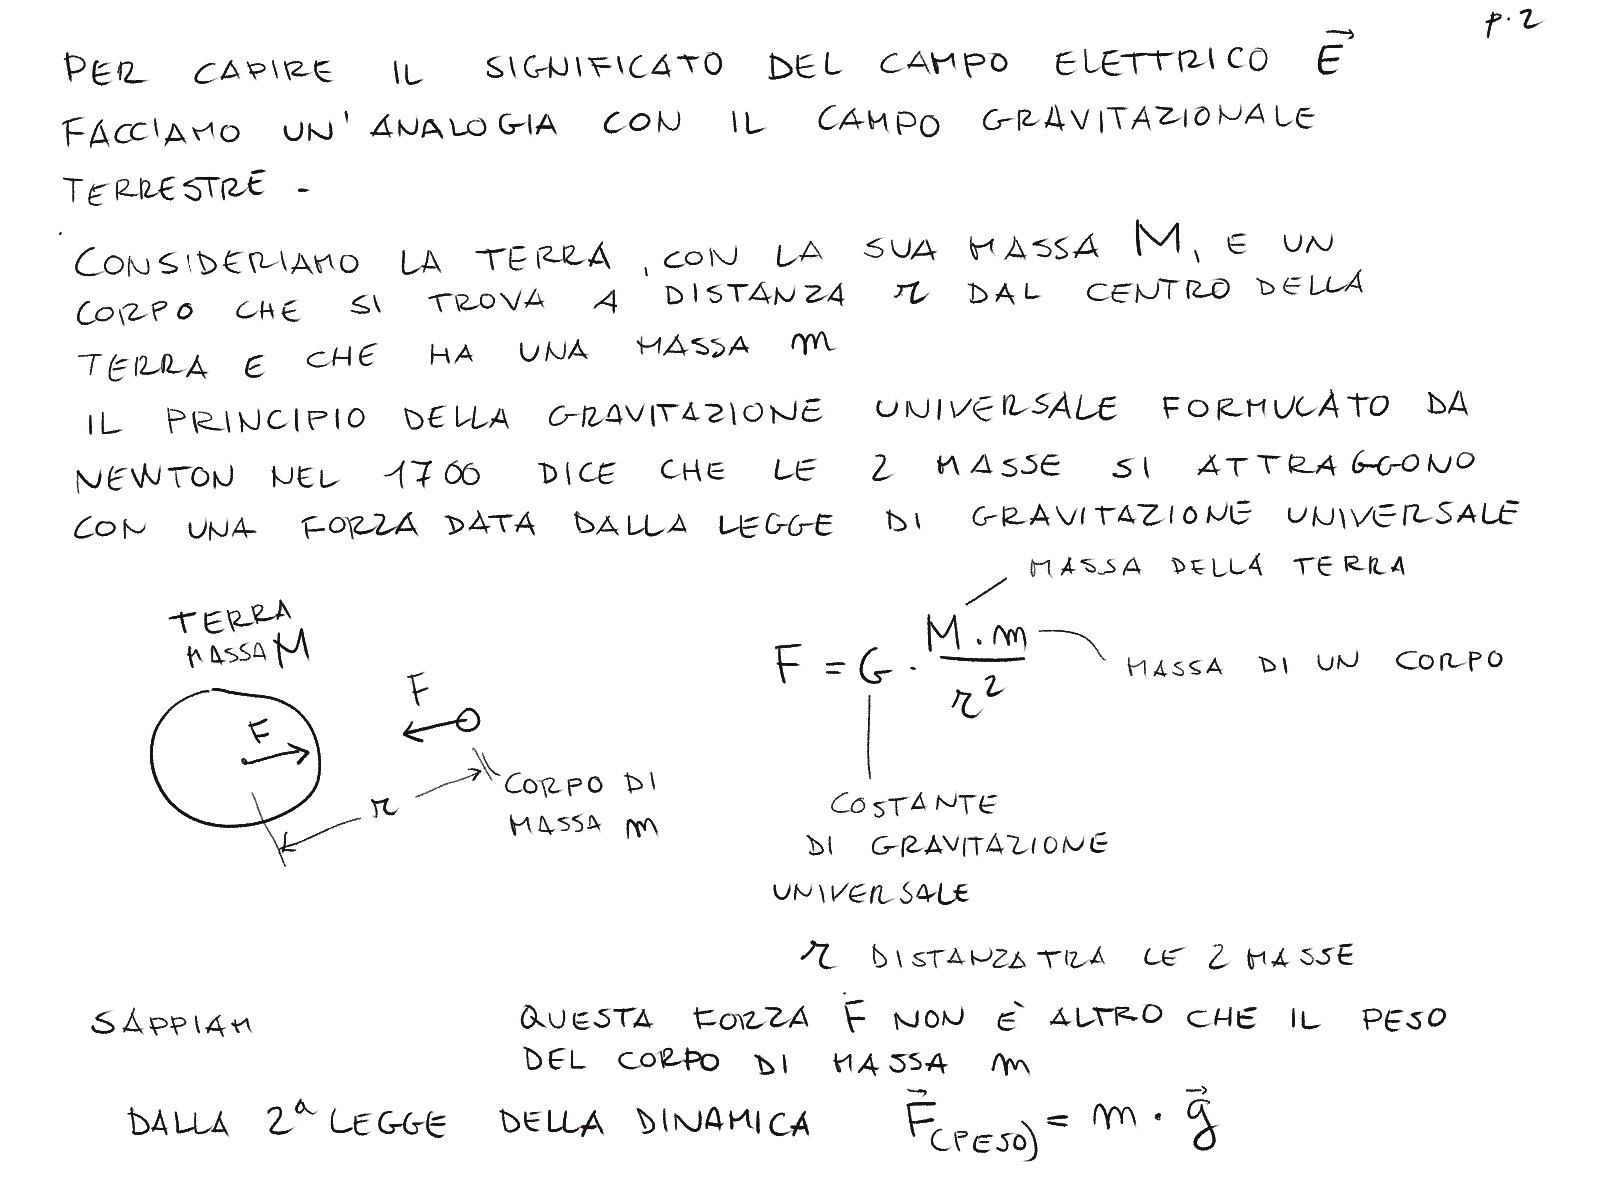 p. 2
PER CAPIRE IL SIGNIFICATO DEL CAMPO ELETTRICO E⃗
FACCIAMO UN' ANALOGIA CON IL CAMPO GRAVITAZIONALE
TERRESTRE -
CONSIDERIAMO LA TERRA, CON LA SUA MASSA M, E UN
CORPO CHE SI TROVA A DISTANZA r DAL CENTRO DELLA
TERRA E CHE HA UNA MASSA m
IL PRINCIPIO DELLA GRAVITAZIONE UNIVERSALE FORMULATO DA
NEWTON NEL 1700 DICE CHE LE 2 MASSE SI ATTRAGGONO
CON UNA FORZA DATA DALLA LEGGE DI GRAVITAZIONE UNIVERSALE
MASSA DELLA TERRA
TERRA
MASSA M
F = G · M · m / r²
MASSA DI UN CORPO
F
F
r
CORPO DI
MASSA m
COSTANTE
DI GRAVITAZIONE
UNIVERSALE
r DISTANZA TRA LE 2 MASSE
SAPPIAM
QUESTA FORZA F NON È ALTRO CHE IL PESO
DEL CORPO DI MASSA m
DALLA 2ª LEGGE DELLA DINAMICA F⃗(PESO) = m · g⃗